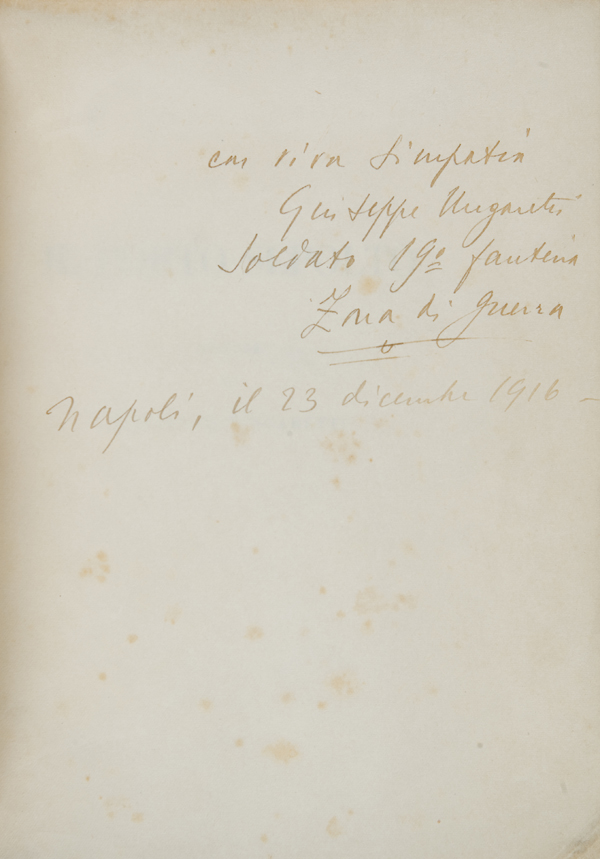 con viva simpatia
Giuseppe Ungaretti
Soldato 19º fanteria
Zona di guerra
Napoli, il 23 dicembre 1916 –